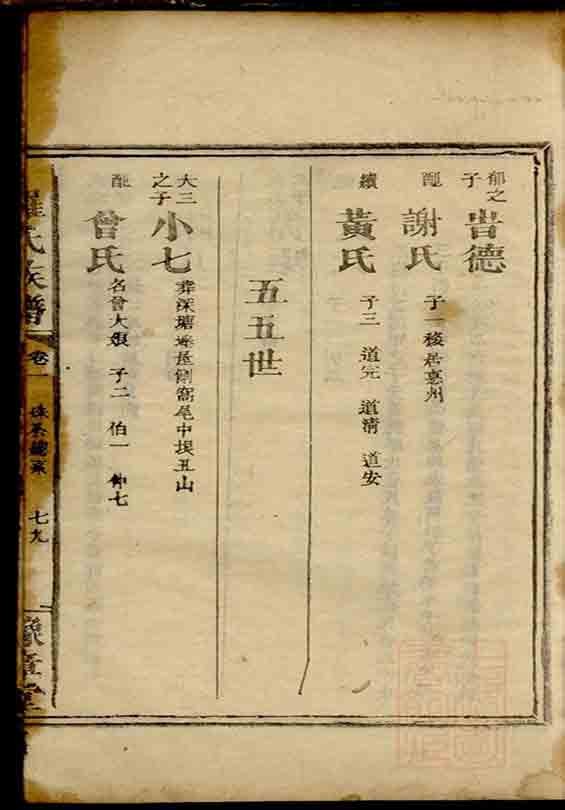 郁之子 昔德
配 謝氏 子一 移居惠州
續 黃氏 子三 道完 道清 道安
五五世
大三之子 小七 葬深塘 屋側窩尾中埃丑山
配 曾氏 名曾大娘 子二 伯一 仲七
羅氏族譜 卷一 七九
豫章堂